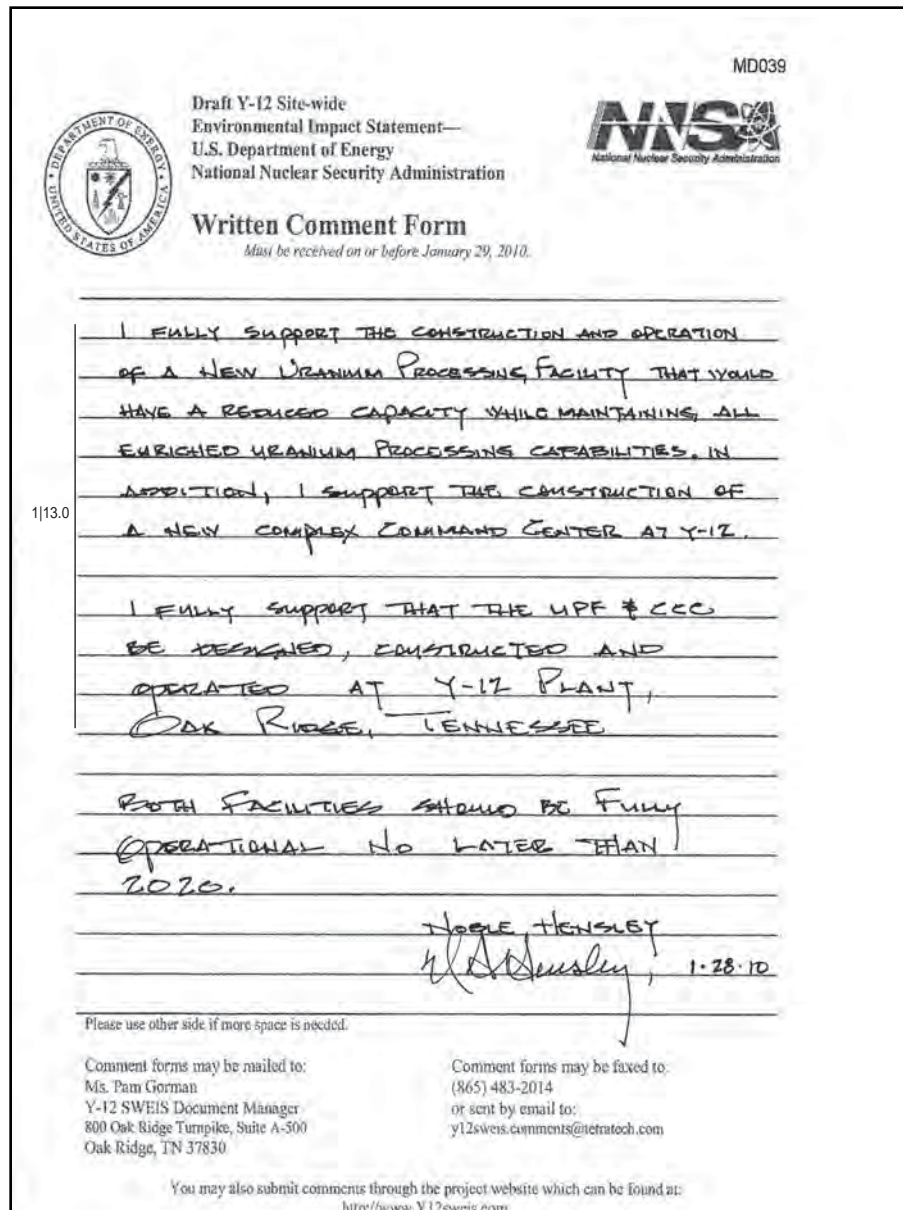 MD039
Draft Y-12 Site-wide
Environmental Impact Statement—
U.S. Department of Energy
National Nuclear Security Administration
DEPARTMENT OF ENERGY
UNITED STATES OF AMERICA
NNSA
National Nuclear Security Administration
Written Comment Form
Must be received on or before January 29, 2010.
I FULLY SUPPORT THE CONSTRUCTION AND OPERATION
OF A NEW URANIUM PROCESSING FACILITY THAT WOULD
HAVE A REDUCED CAPACITY WHILE MAINTAINING ALL
ENRICHED URANIUM PROCESSING CAPABILITIES. IN
ADDITION, I SUPPORT THE CONSTRUCTION OF
1|13.0
A NEW COMPLEX COMMAND CENTER AT Y-12.
I FULLY SUPPORT THAT THE UPF & CCC
BE DESIGNED, CONSTRUCTED AND
OPERATED AT Y-12 PLANT,
OAK RIDGE, TENNESSEE
BOTH FACILITIES SHOULD BE FULLY
OPERATIONAL NO LATER THAN
2020.
NOBLE HENSLEY
N A Hensley, 1.28.10
Please use other side if more space is needed.
Comment forms may be mailed to:
Ms. Pam Gorman
Y-12 SWEIS Document Manager
800 Oak Ridge Turnpike, Suite A-500
Oak Ridge, TN 37830
Comment forms may be faxed to:
(865) 483-2014
or sent by email to:
y12sweis.comments@tetratech.com
You may also submit comments through the project website which can be found at:
http://www.Y12sweis.com